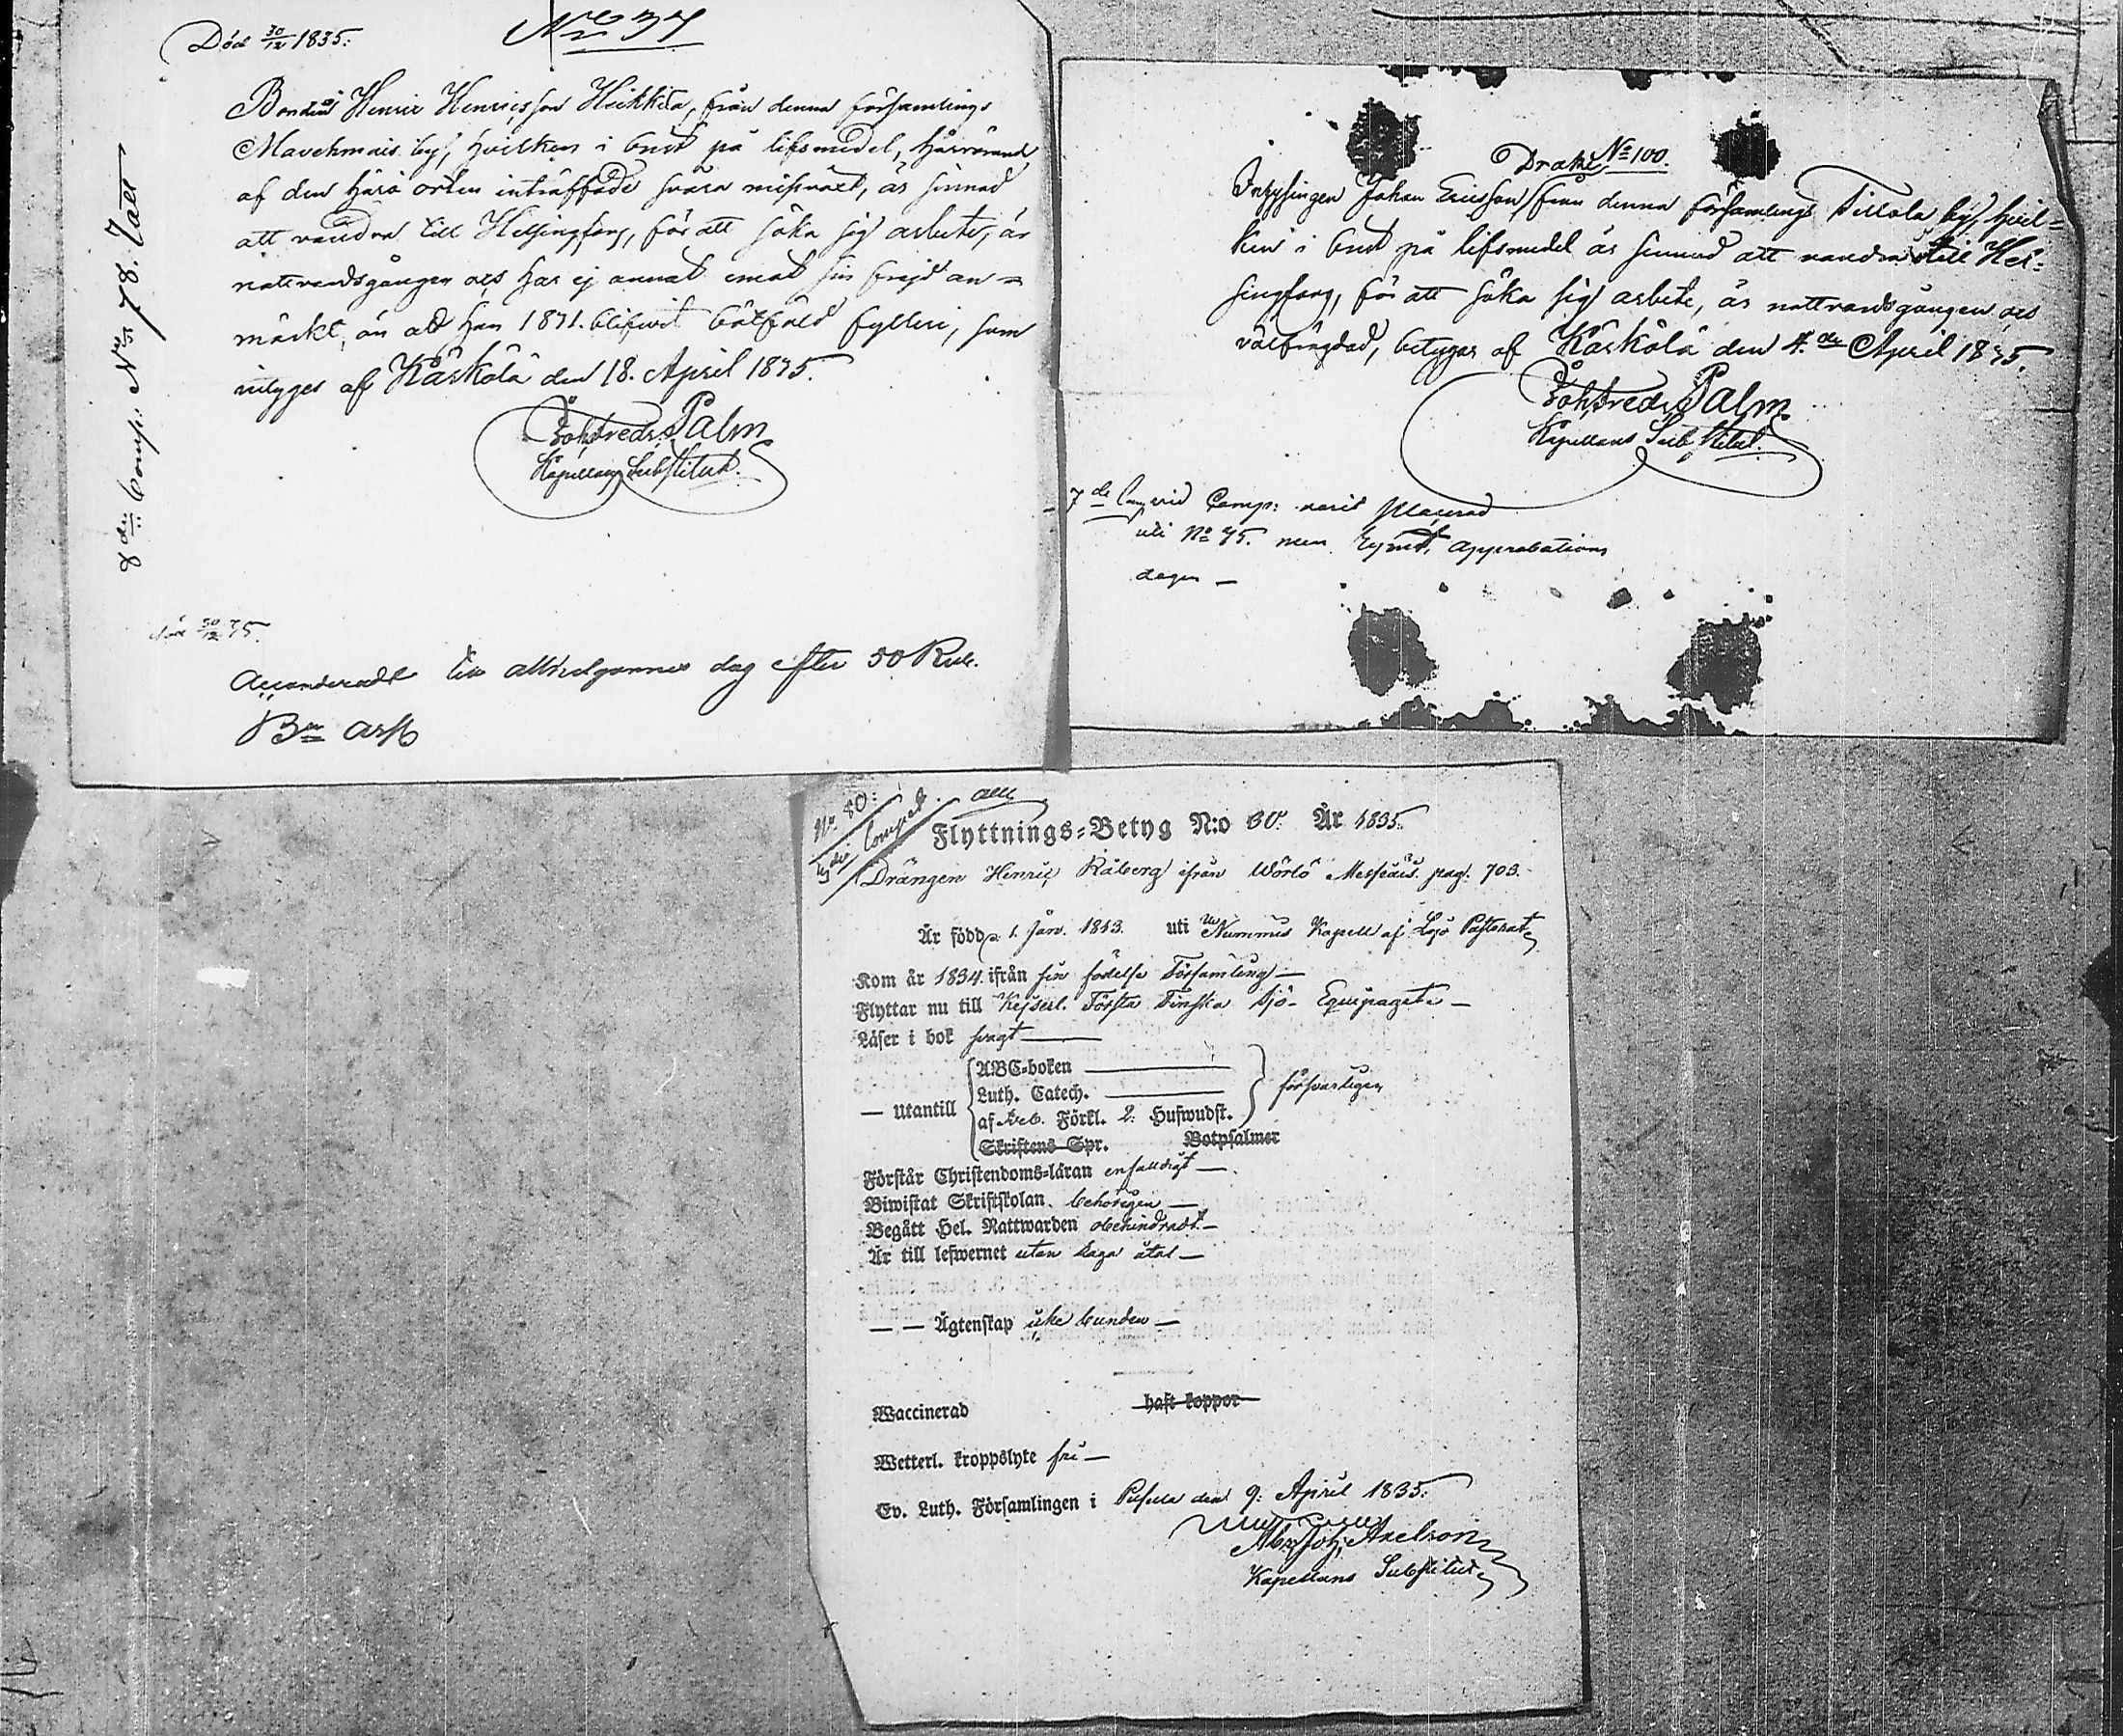 Död 30/12 1835.
No 37
Bonden Henric Henricsson Heikkilä, från denna församlings
Mavehmais by, hvilken i brist på lifsmedel, härrörande
af den härå orten inträffade svåra missväxt, är sinnad
att vandra till Helsingfors, för att söka sig arbete, är
nattvardsgången och har ej annat emot sin frejd an-
märkt, än att han 1831. blifwit bötfäld fylleri, som
intygas af Kärkölä den 18. April 1835.
Joh: Fredr: Palm
Kapellans Substitut.
8de Comp: No 78.
död 30/12 35.
till allhelgonnes dag efter 50 Rub.
Drake No 100.
Inhysingen Johan Ericsson från denna församlings Tillola by, hvil-
ken i brist på lifsmedel är sinnad att vandra till Hel-
singfors, för att söka sig arbete, är nattvardsgången och
välfrägdad, betygar af Kärkölä den 4.de April 1835.
Joh: Fredr: Palm
Kapellans Substitut.
7de vid Comp:
uti No 75. men approbations
dagen —
No 80:
Compet
Flyttnings-Betyg N:o 30. År 1835.
Drängen Henric Råberg ifrån Wörlö pag. 703.
Är född d. 1. Jan. 1813. uti Nummis Kapell af Lojo Pastorat
Kom år 1834. ifrån sin födelse Församling —
Flyttar nu till Kejserl. Första Finska Sjö-Equipaget —
Läser i bok svagt —
— Utantill
ABC-boken —
Luth. Catech. —
af Förkl. 2. Hufwudst.
Skriftens Spr. Botpsalmer
försvarligen
Förstår Christendoms-läran enfaldigt —
Biwistat Skriftskolan behörigen —
Begått Hel. Nattwarden obehindradt —
Är till lefwernet utan laga åtal —
— — Ägtenskap icke bunden —
Waccinerad haft koppor
Wetterl. kroppslyte fri —
Ev. Luth. Församlingen i Pusula den 9. April 1835.
Abr. Joh. Axelson
Kapellans Substitut